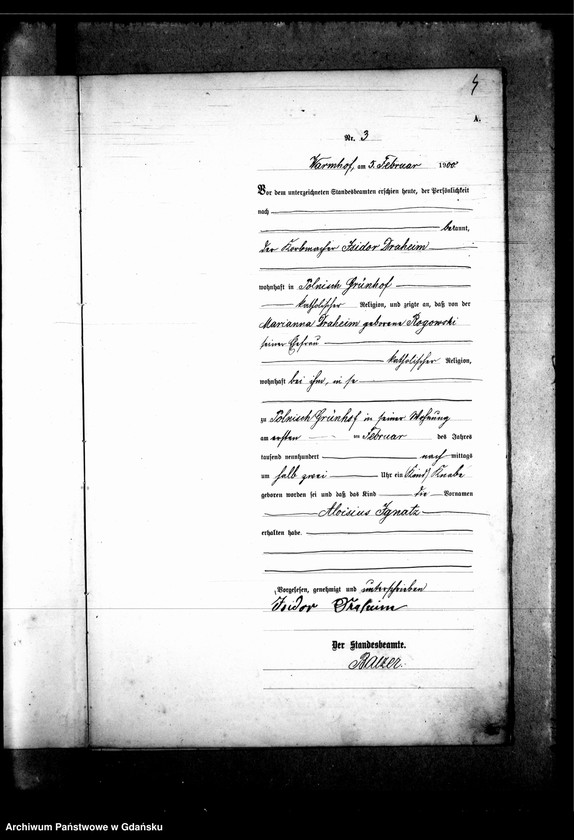 A.
Nr. 3
Warmhof, am 5. Februar 1900
Vor dem unterzeichneten Standesbeamten erschien heute, der Persönlichkeit
nach
bekannt,
der Korbmacher Isidor Draheim
wohnhaft in Polnisch Grünhof
katholischer Religion, und zeigte an, daß von der
Marianna Draheim geborene Rogowski
seiner Ehefrau
katholischer Religion,
wohnhaft bei ihm, in se
zu Polnisch Grünhof in seiner Wohnung
am ersten Februar des Jahres
tausend neunhundert nach mittags
um halb zwei Uhr ein (Kind) Knabe
geboren worden sei und daß das Kind die Vornamen
Aloisius Ignatz
erhalten habe.
Vorgelesen, genehmigt und unterschrieben
Isidor Draheim
Der Standesbeamte.
Balzer.
Archiwum Państwowe w Gdańsku